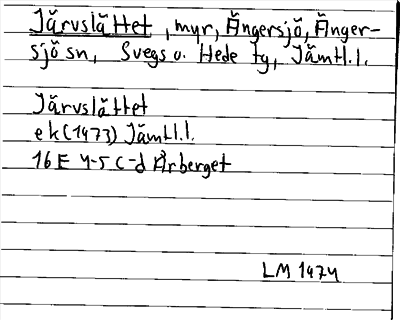 Järvslåttet, myr, Ängersjö, Änger-
sjö sn, Svegs o. Hede tg, Jämtl.l.
Järvslåttet
ek (1973) Jämtl.l.
16 E 4-5 c-d Årberget
LM 1974